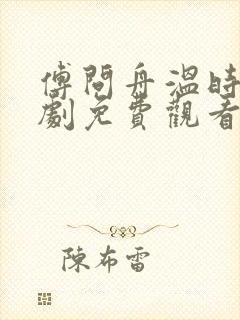 傅問舟溫時
劇免費觀看
陳布雷